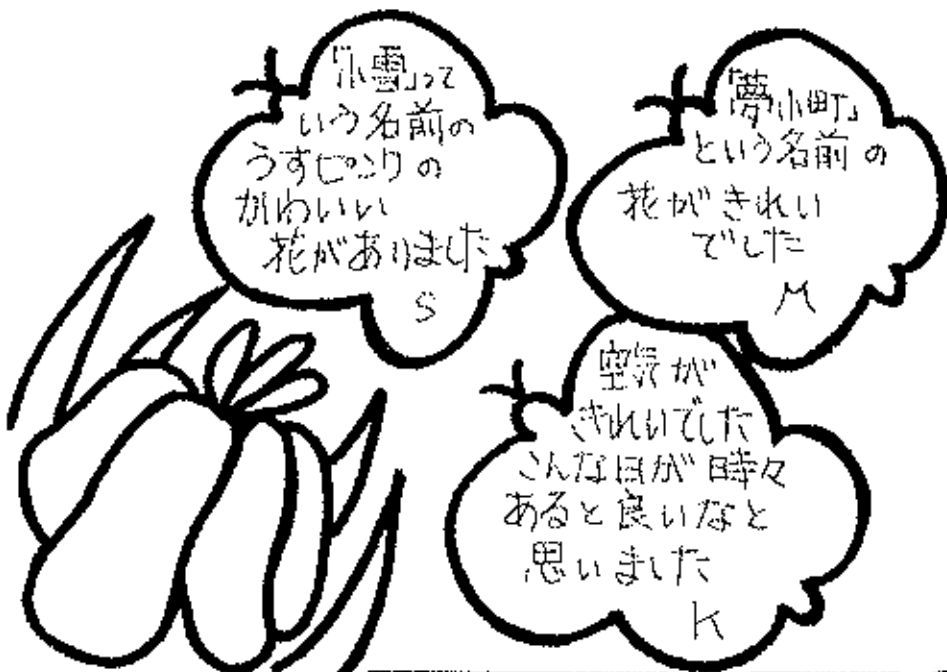 「小雪」って
いう名前の
うすピンクの
かわいい
花がありました
S
「夢小町」
という名前の
花がきれい
でした
M
空気が
きれいでした
こんな日が時々
あると良いなと
思いました
K